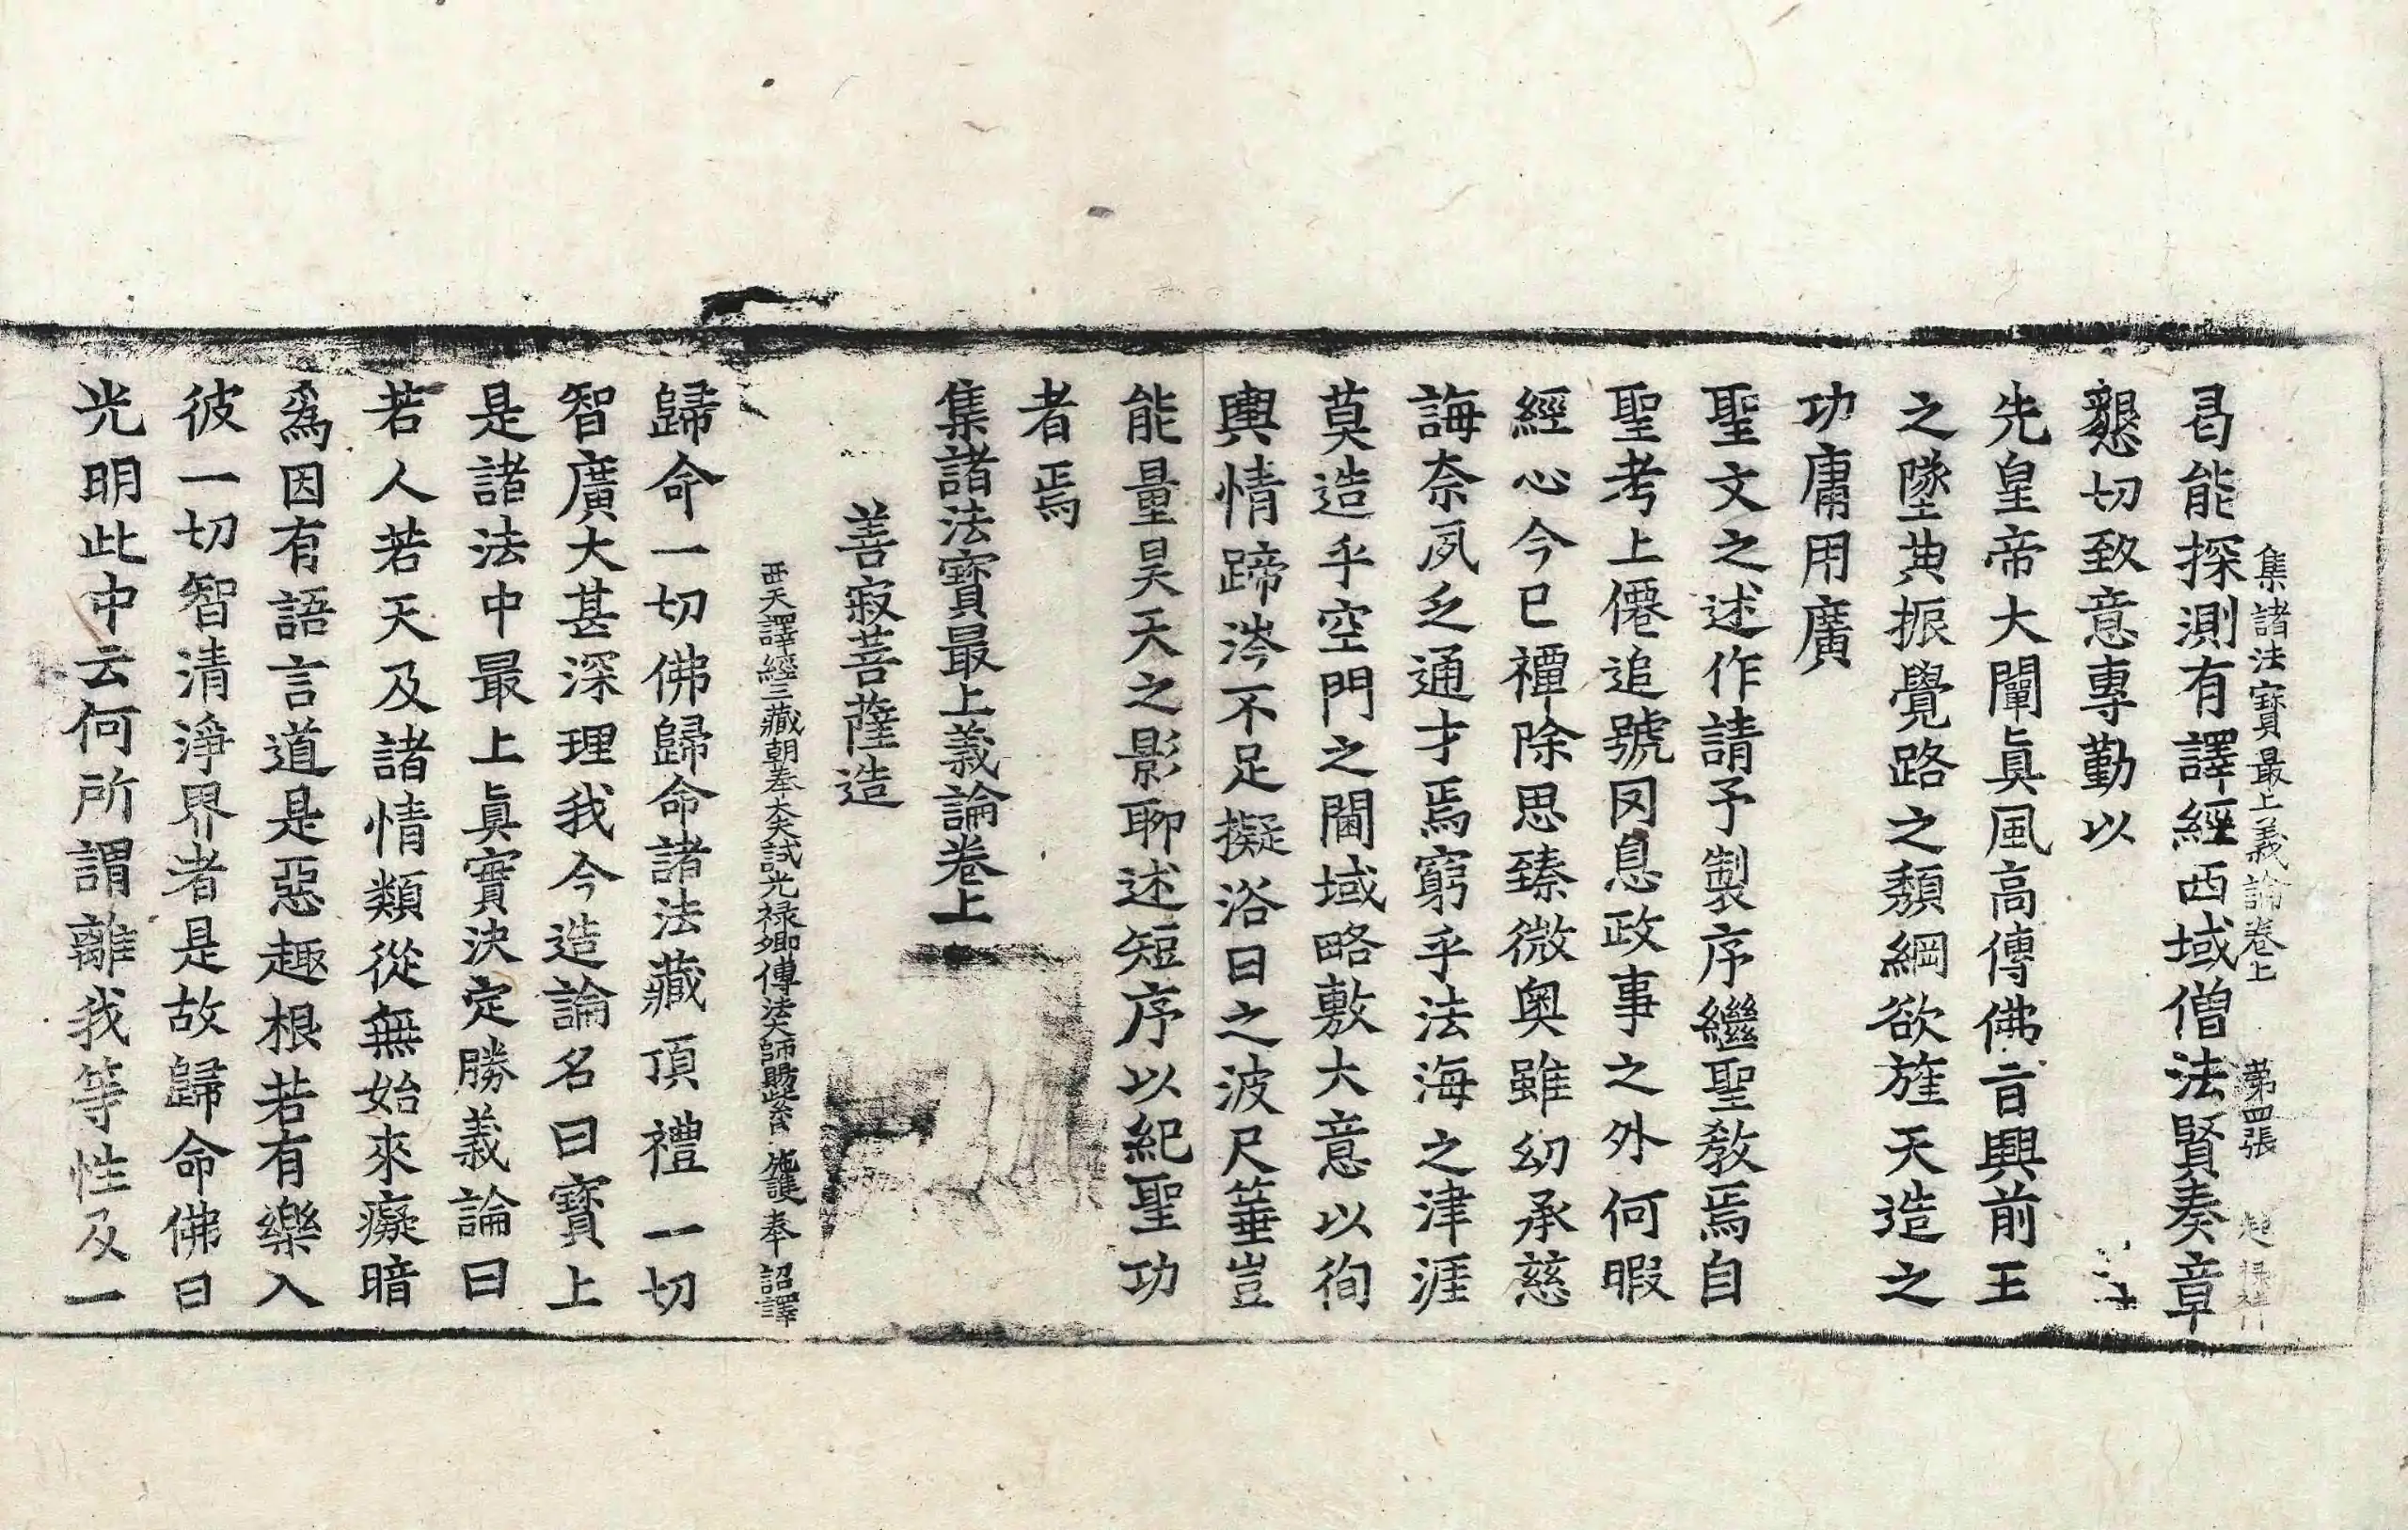 集諸法寶最上義論卷上 第四張
曷能探測有譯經西域僧法賢奏章
懇切致意專勤以
先皇帝大闡眞風高傳佛旨興前王
之墜典振覺路之頹綱欲旌天造之
功庸用廣
聖文之述作請予製序繼聖教焉自
聖考上僊追號罔息政事之外何暇
經心今已禫除思臻微奧雖幼承慈
誨奈夙乏通才焉窮乎法海之津涯
莫造乎空門之閫域略敷大意以徇
輿情蹄涔不足擬浴日之波尺箠豈
能量昊天之影聊述短序以紀聖功
者焉
集諸法寶最上義論卷上
善寂菩薩造
西天譯經三藏朝奉大夫試光祿卿傳法大師賜紫臣施護奉 詔譯
歸命一切佛歸命諸法藏頂禮一切
智廣大甚深理我今造論名曰寶上
是諸法中最上眞實決定勝義論曰
若人若天及諸情類從無始來癡暗
爲因有語言道是惡趣根若有樂入
彼一切智清淨界者是故歸命佛曰
光明此中云何所謂離我等性及一